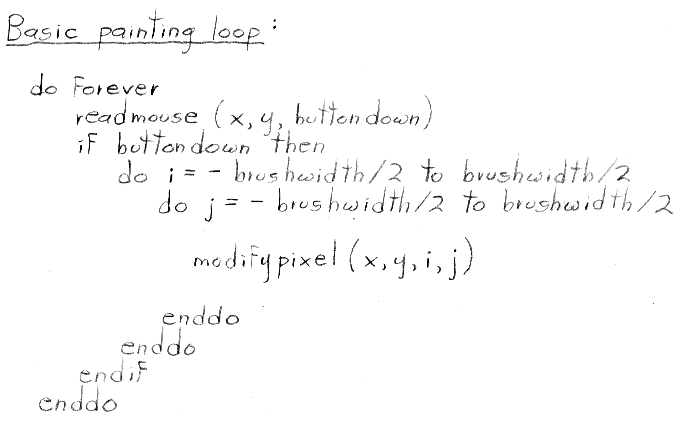 Basic painting loop:
do forever
readmouse (x, y, buttondown)
if buttondown then
do i = - brushwidth/2 to brushwidth/2
do j = - brushwidth/2 to brushwidth/2
modifypixel (x, y, i, j)
enddo
enddo
endif
enddo